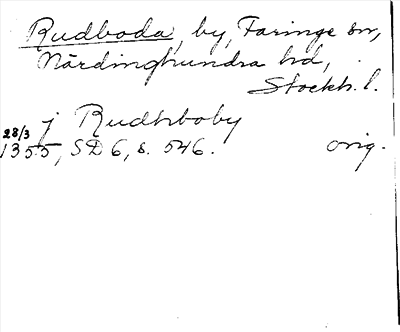 Rudboda, by, Faringe sn,
Närdinghundra hd,
Stockh. l.
j Rudhboby
28/3
1355, SD 6, s. 546. orig.